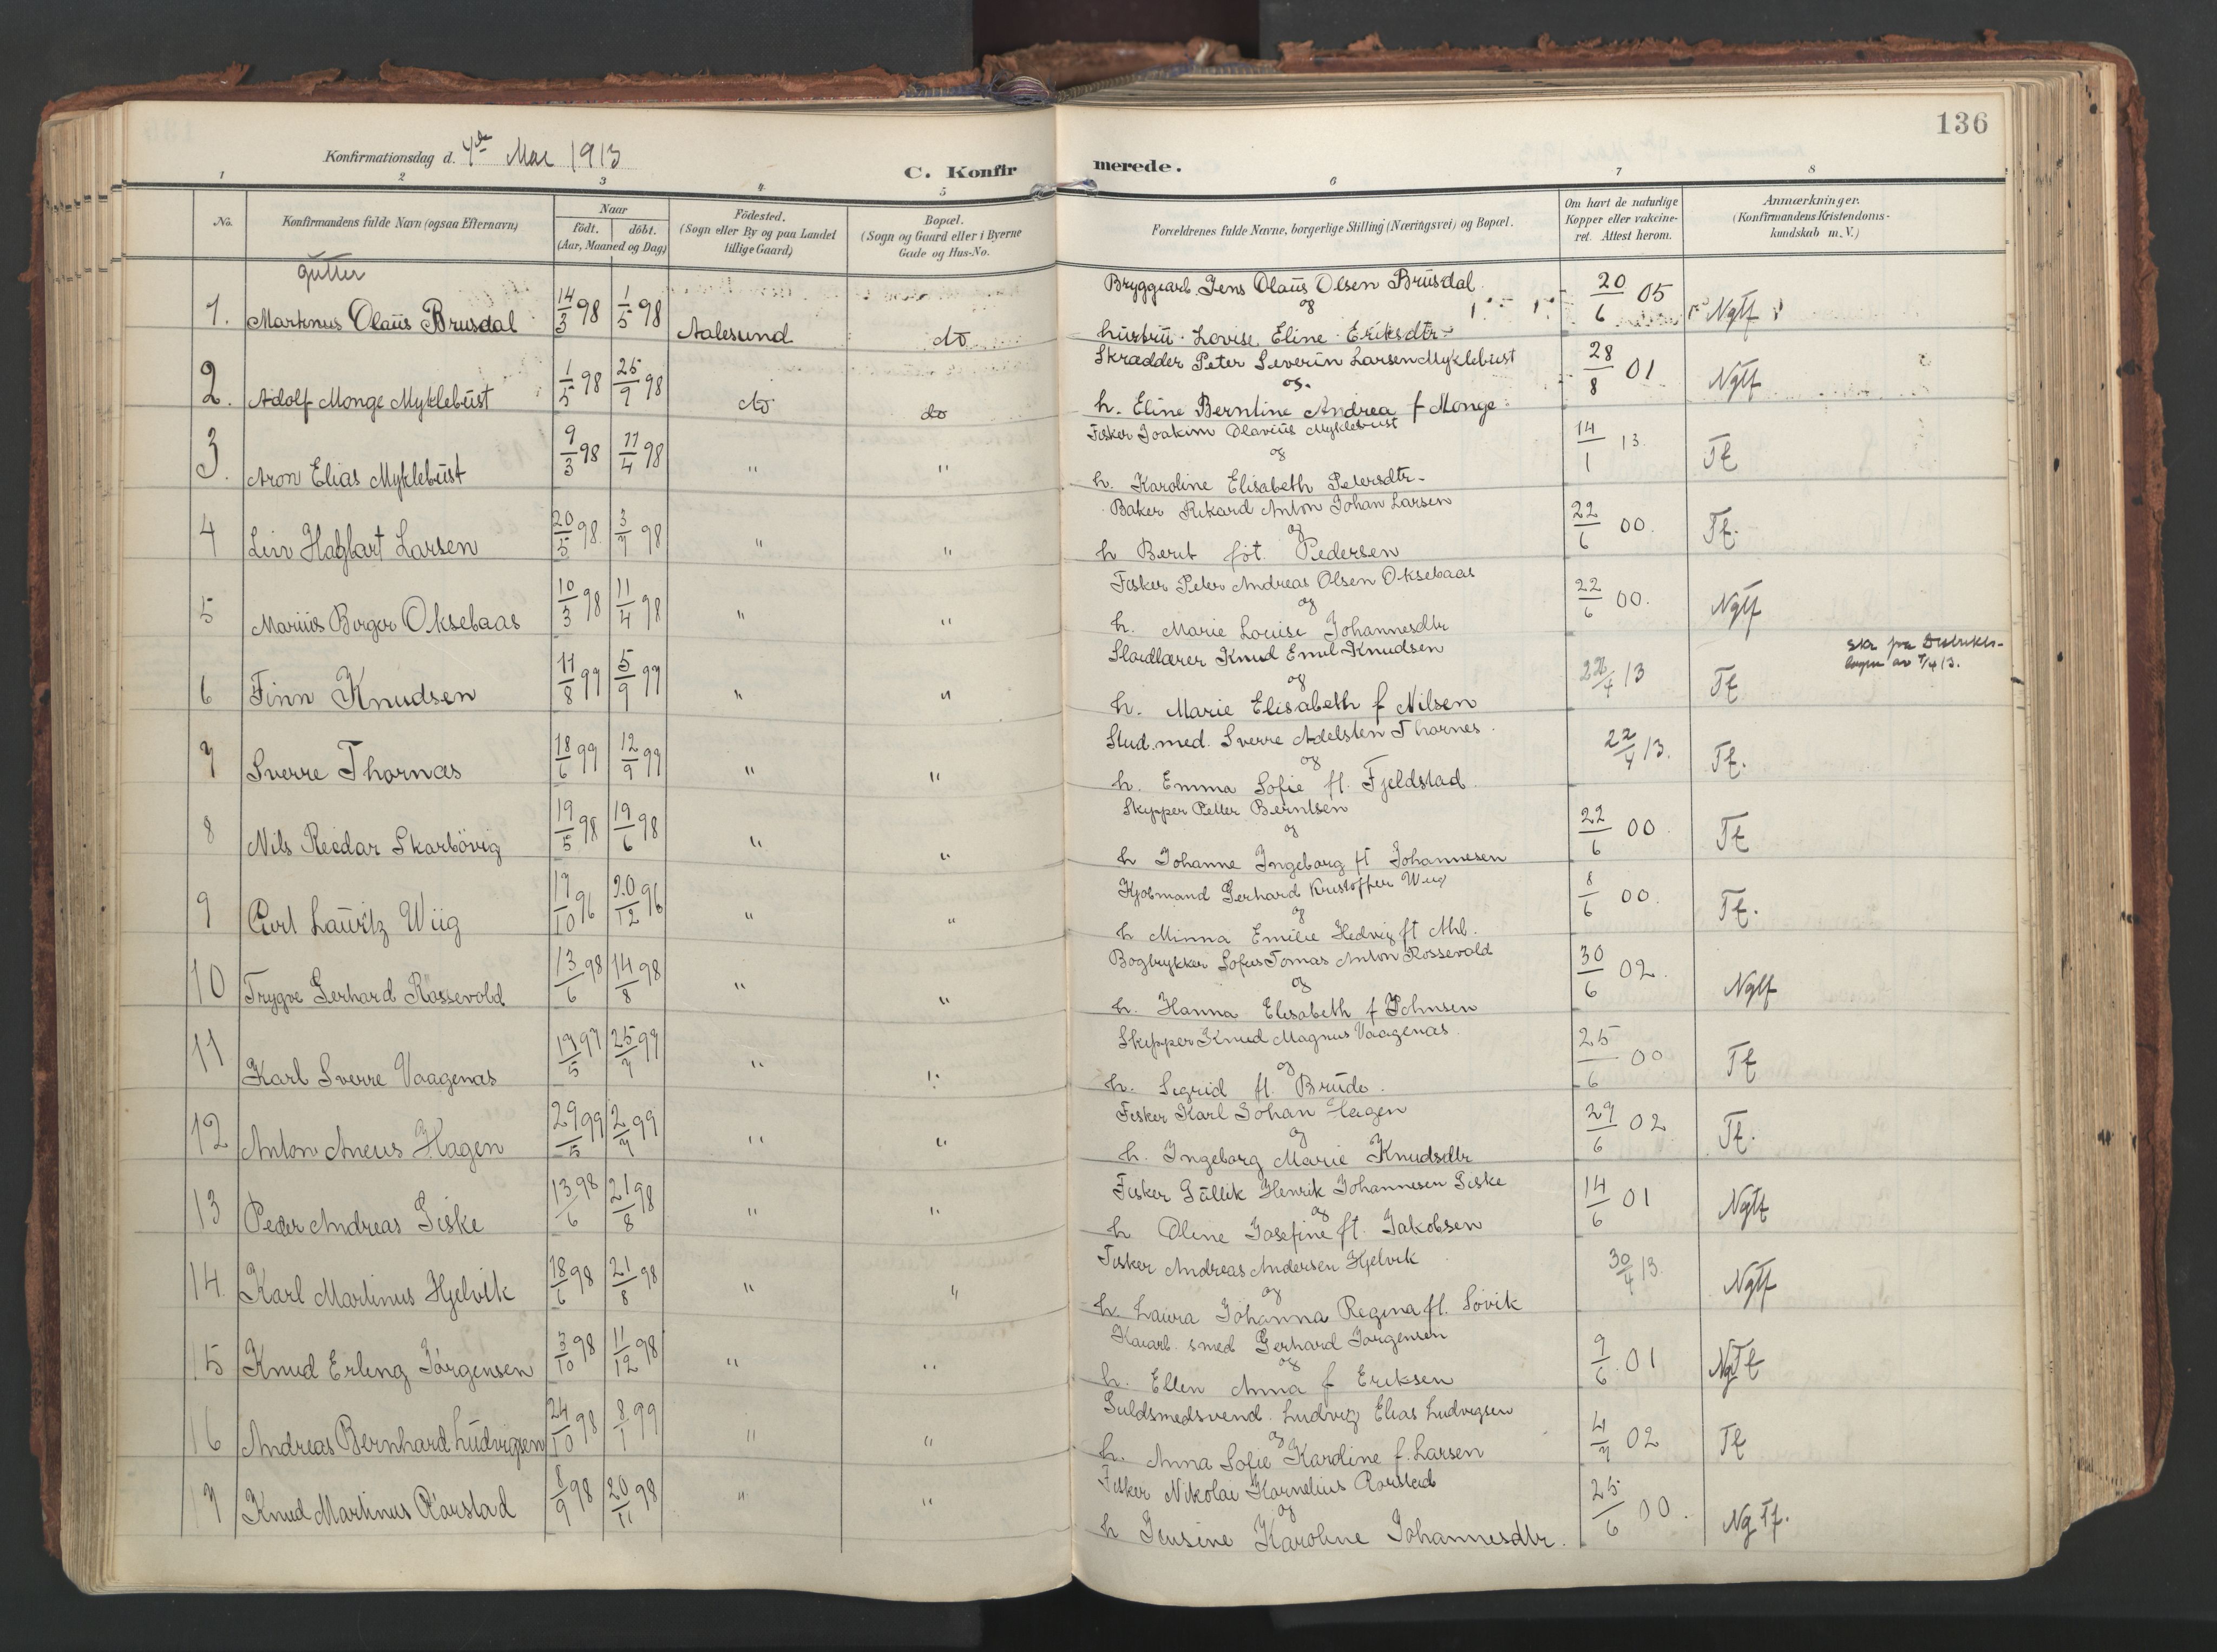 136
Konfirmationsdag d. 4de Mai 1913
C. Konfirmerede.
1 2 3 4 5 6 7 8
No. Konfirmandens fulde Navn (ogsaa Efternavn) Naar født. døbt. (Aar, Maaned og Dag) Födested. (Sogn eller By og paa Landet tillige Gaard) Bopæl. (Sogn og Gaard eller i Byerne Gade og Hus-No. Forældrenes fulde Navne, borgerlige Stilling (Næringsvei) og Bopæl. Om havt de naturlige Kopper eller vakcineret. Attest herom. Anmærkninger. (Konfirmandens Kristendomskundskab m. V.)
Gutter
1. Martinus Olaus Brusdal 14/3 98 1/5 98 Aalesund do Bryggearb. Jens Olaus Olsen Brusdal og hustru Lovise Eline Eriksdtr. 20/6 05 Ngtf
2. Adolf Monge Myklebust 1/5 98 25/9 98 do do Skrædder Peter Severin Larsen Myklebust og h. Eline Berntine Andrea f Monge 28/8 01 Ngtf
3. Aron Elias Myklebust 9/3 98 11/4 98 " " Fisker Joakim Olavius Myklebust og h. Karoline Elisabeth Petersdtr. 14/1 13. Tf
4 Hagbart Larsen 20/5 98. 3/7 98 " " Baker Rikard Anton Johan Larsen og h Berit føt. Pedersen 22/6 00. Tf.
5 Marius Birger Oksebaas 10/3 98 11/4 98 " " Fisker Peter Andreas Olsen Oksebaas og h. Marie Louise Johannesdtr 22/6 00. Ngtf
6 Finn Knudsen 11/8 99 5/9 99 " " Sløidlærer Knud Emil Knudsen og h. Marie Elisabeth f Nilsen 22/4 13 Tf
Skr. fra av 7/4 13.
7 Sverre Thornæs 18/6 99 12/9 99 " " Stud. med. Sverre Adelsten Thornes. og h. Emma Sofie ft. Fjeldstad 22/4 13. Tf.
8 Nils Reidar Skarbövig 19/5 98 19/6 98 " " Skipper Petter Berntsen og h Johanne Ingeborg ft Johannesen 22/6 00 Tf
9 Lauritz Wiig 17/10 96 20/12 96 " " Kjøbmand Gerhard Kristoffer Wiig og h Minna Emilie Hedvig ft 8/6 00. Tf.
10 Trygve Gerhard Rossevold 13/6 98 14/8 98 " " Bogtrykker Sofus Tomas Anton Rossevold og h. Hanna Elisabeth f Johnsen 30/6 02. Ngtf
11 Karl Sverre Vaagenæs 17/5 97 25/7 97 " " Skipper Knud Magnus Vaagenæs. og h. Sigrid ft. Brude. 25/6 00 Tf
12 Anton Hagen 29/5 99 2/7 99 " " Fisker Karl Johan Hagen og h. Ingeborg Marie Knudsdtr 29/6 02 Tf.
13 Peder Andreas Giske 13/6 98 21/8 98 " " Fisker Gullik Henrik Johannesen Giske og h Oline Josefine ft. Jakobsen 14/6 01 Ngtf
14. Karl Martinus Hjelvik 18/6 98 21/8 98 " " Fisker Andreas Andersen Hjelvik og h Laura Johanna Regina ft. Sövik 30/4 13. Ngtf
15 Knud Erling Jörgensen 3/10 98 11/12 98 " " smed Gerhard Jörgensen og h. Ellen Anna f Eriksen 9/6 01 NgTf
16 Andreas Bernhard Ludvigsen 24/10 98 8/1 99 " " Guldsmedsvend. Ludvig Elias Ludvigsen og h. Anna Sofie Karoline f. Larsen 4/7 02 Tf
17 Knud Martinus Rørstad 8/9 98 20/11 98 " " Fisker Nikolai Kornelius Rørstad og h Jensine Karoline Johannesdtr. 25/6 00. NgTf.